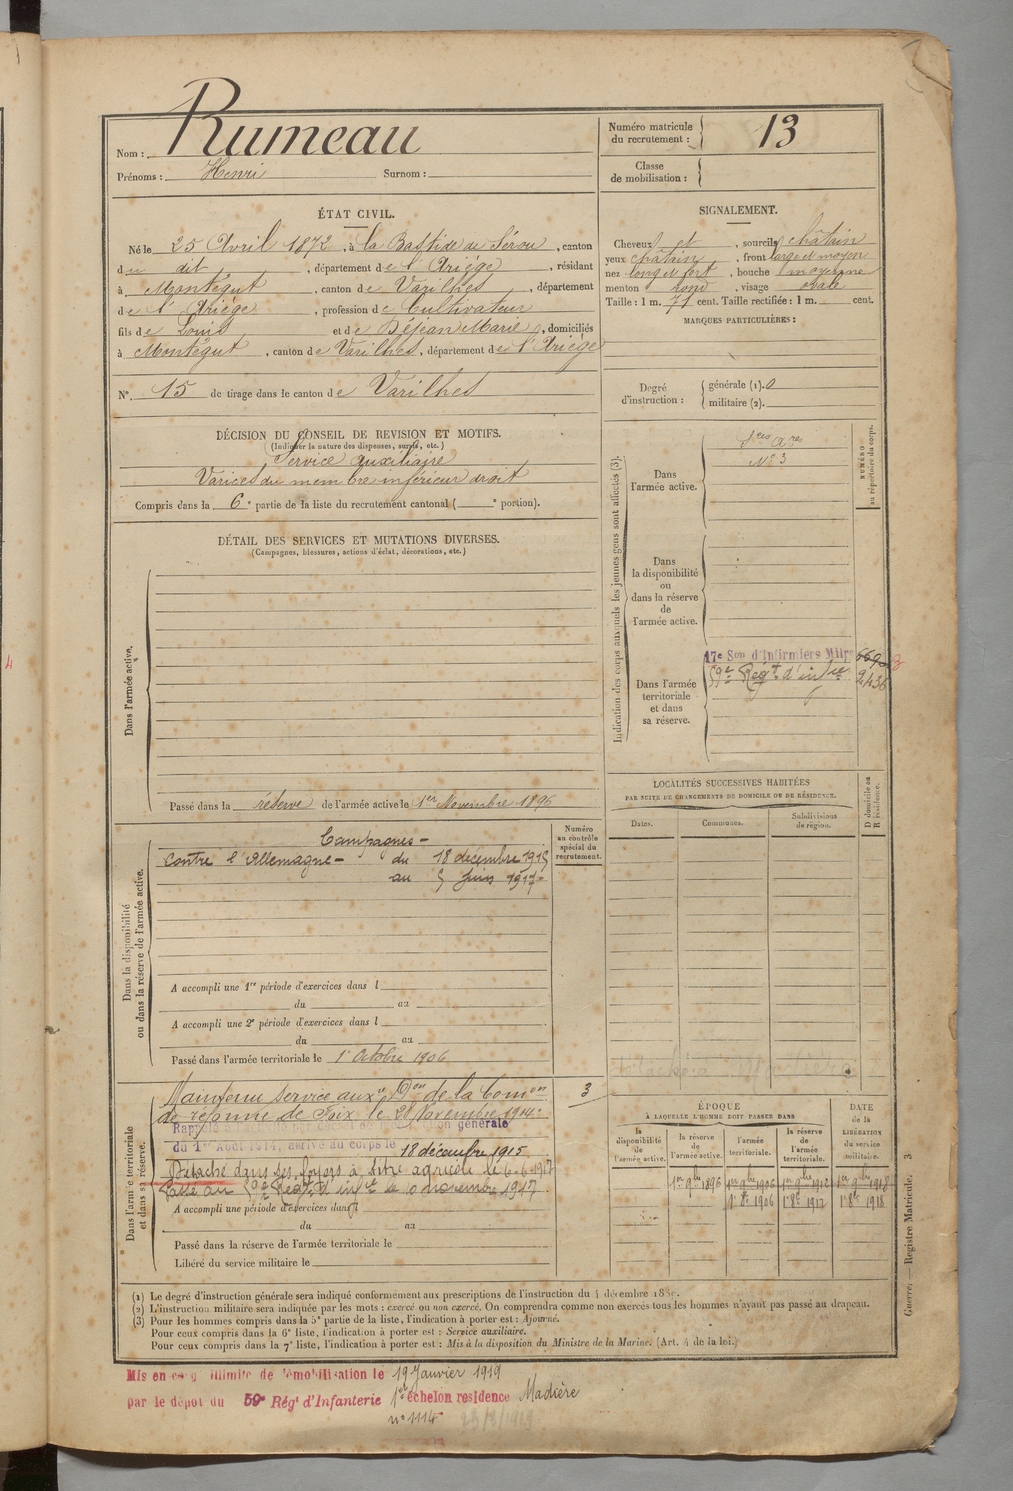 Nom : Rumeau
Prénoms : Henri Surnom :
Numéro matricule du recrutement : 13
Classe de mobilisation :
ÉTAT CIVIL.
Né le 25 Avril 1872, à la Bastide de Sérou, canton
du dit, département de l'Ariège, résidant
à Montégut, canton de Varilhes, département
de l'Ariège, profession de Cultivateur
fils de Louis et de Déjean Marie, domiciliés
à Montégut, canton de Varilhes, département de l'Ariège
N° 15 de tirage dans le canton de Varilhes
SIGNALEMENT.
Cheveux et, sourcils châtain
yeux châtain, front large et moyen
nez long et fort, bouche moyenne
menton rond, visage ovale
Taille : 1 m. 71 cent. Taille rectifiée : 1 m. cent.
MARQUES PARTICULIÈRES :
Degré d'instruction :
générale (1). 0
militaire (2).
DÉCISION DU CONSEIL DE REVISION ET MOTIFS.
(Indiquer la nature des dispenses, sursis, etc.)
Service auxiliaire
Varices du membre inférieur droit
Compris dans la 6e partie de la liste du recrutement cantonal ( e portion).
DÉTAIL DES SERVICES ET MUTATIONS DIVERSES.
(Campagnes, blessures, actions d'éclat, décorations, etc.)
Dans l'armée active.
Passé dans la réserve de l'armée active le 1er Novembre 1896
Indication des corps auxquels les jeunes gens sont affectés (3).
NUMÉRO au répertoire du corps.
Dans l'armée active.
N° 3
Dans la disponibilité ou dans la réserve de l'armée active.
Dans l'armée territoriale et dans sa réserve.
17e Son d'Infirmiers Milres
59e Régt d'infie 2436
LOCALITÉS SUCCESSIVES HABITÉES
PAR SUITE DE CHANGEMENTS DE DOMICILE OU DE RÉSIDENCE.
Dates. Communes. Subdivisions de région. D domicile ou R résidence.
Numéro au contrôle spécial du recrutement.
Dans la disponibilité ou dans la réserve de l'armée active.
Campagnes -
contre l'Allemagne - du 18 décembre 1915
au 5 juin 1917
A accompli une 1re période d'exercices dans l
du au
A accompli une 2e période d'exercices dans l
du au
Passé dans l'armée territoriale le 1er Octobre 1906
3
Dans l'armée territoriale et dans sa réserve.
Maintenu service auxre Don de la Comon
de réforme de Foix le 21 Novembre 1914
du 1er Août 1914, arrivé au corps le 18 décembre 1915
Détaché dans ses foyers à titre agricole le 6-6-1917
Passé au 59e Régt d'infie le 10 novembre 1917
A accompli une période d'exercices dans l
du au
Passé dans la réserve de l'armée territoriale le
Libéré du service militaire le
ÉPOQUE
À LAQUELLE L'HOMME DOIT PASSER DANS
la disponibilité de l'armée active.
la réserve de l'armée active.
l'armée territoriale.
la réserve de l'armée territoriale.
DATE de la LIBÉRATION du service militaire.
1er 9bre 1896 1er 9bre 1906 1er 9bre 1912 1er 9bre 1918
1er 8bre 1906 1er 8bre 1912 1er 8bre 1918
(1) Le degré d'instruction générale sera indiqué conformément aux prescriptions de l'instruction du 4 décembre
(2) L'instruction militaire sera indiquée par les mots : exercé ou non exercé. On comprendra comme non exercés tous les hommes n'ayant pas passé au drapeau.
(3) Pour les hommes compris dans la 5e partie de la liste, l'indication à porter est : Ajourné.
Pour ceux compris dans la 6e liste, l'indication à porter est : Service auxiliaire.
Pour ceux compris dans la 7e liste, l'indication à porter est : Mis à la disposition du Ministre de la Marine. (Art. 4 de la loi.)
Guerre. — Registre Matricule. 3
Mis en congé illimité de démobilisation le 19 Janvier 1919
par le dépôt du 59e Régt d'Infanterie 1er échelon résidence Madière
n° 1114